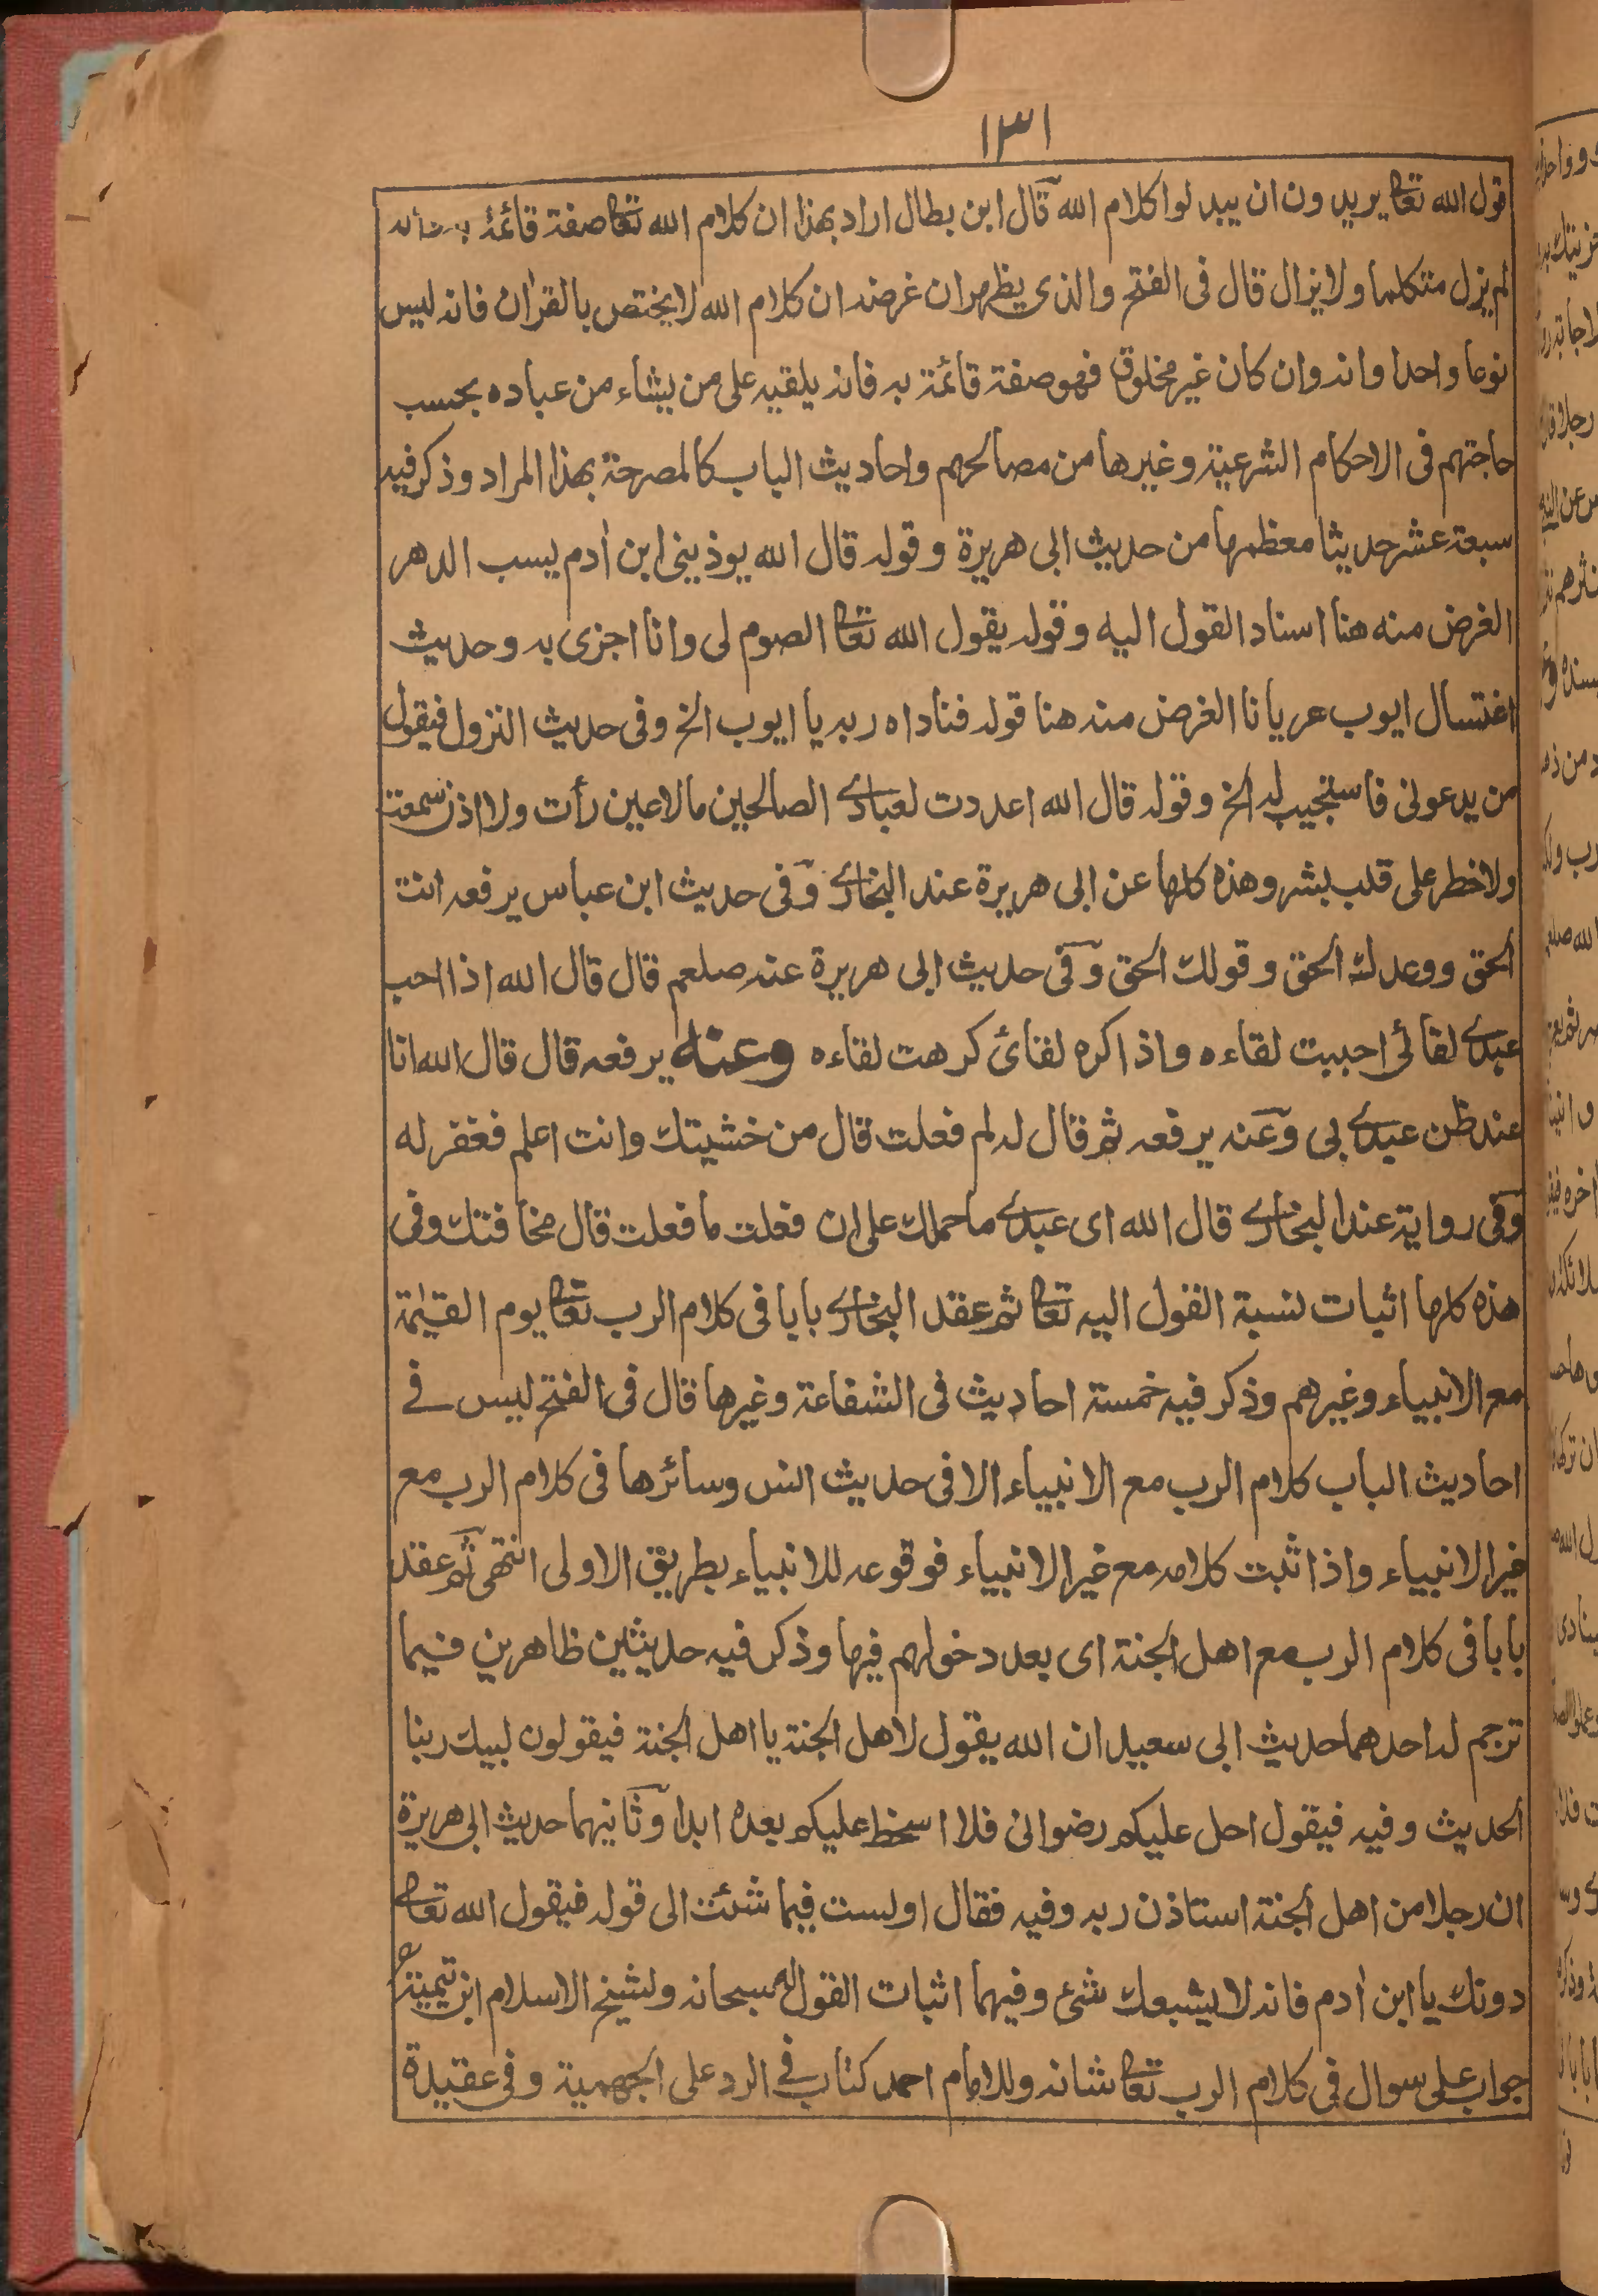 ١٣١
قول الله تعالى يريدون ان يبدلوا كلام الله قال ابن بطال اراد بهذا ان كلام الله تعالى صفة قائمة بذاته
لم يزل متكلما ولا يزال قال في الفتح والذي يظهر ان غرضه ان كلام الله لا يختص بالقرآن فانه ليس
نوعا واحدا وانه وان كان غير مخلوق فهو صفة قائمة به فانه يلقيه على من يشاء من عباده بحسب
حاجتهم في الاحكام الشرعية وغيرها من مصالحهم واحاديث الباب كالمصرحة بهذا المراد وذكر فيه
سبعة عشر حديثا معظمها من حديث ابى هريرة وقوله قال الله يوذينى ابن أدم يسب الدهر
الغرض منه هنا اسناد القول اليه وقوله يقول الله تعالى الصوم لى وانا اجزى به وحديث
اغتسال ايوب عريانا الغرض منه هنا قوله فناداه ربه يا ايوب الخ وفى حديث النزول فيقول
من يدعونى فاستجيب له الخ وقوله قال الله اعددت لعبادي الصالحين مالاعين رأت ولا اذن سمعت
ولاخطر على قلب بشر وهذه كلها عن ابى هريرة عند البخاري وفى حديث ابن عباس يرفعه انت
الحق ووعدك الحق وقولك الحق وفى حديث ابى هريرة عنه صلعم قال قال الله اذا احب
عبدي لقائى احببت لقاءه واذا كره لقائ كرهت لقاءه وعنه يرفعه قال قال الله انا
عند ظن عبدي بى وعنه يرفعه ثم قال له لم فعلت قال من خشيتك وانت اعلم فغفر له
وفى رواية عند البخاري قال الله اى عبدي ما حملك على ان فعلت ما فعلت قال مخافتك وفى
هذه كلها اثبات نسبة القول اليه تعالى ثم عقد البخاري بابا فى كلام الرب تعالى يوم القيمة
مع الانبياء وغيرهم وذكر فيه خمسة احاديث فى الشفاعة وغيرها قال فى الفتح ليس في
احاديث الباب كلام الرب مع الانبياء الا فى حديث انس وسائرها فى كلام الرب مع
غير الانبياء واذا ثبت كلامه مع غير الانبياء فوقوعه للانبياء بطريق الاولى انتهى ثم عقد
بابا فى كلام الرب مع اهل الجنة اى بعد دخولهم فيها وذكر فيه حديثين ظاهرين فيما
ترجم له احدهما حديث ابى سعيد ان الله يقول لاهل الجنة يا اهل الجنة فيقولون لبيك ربنا
الحديث وفيه فيقول احل عليكم رضوانى فلا اسخط عليكم بعده ابدا وثانيهما حديث ابى هريرة
ان رجلا من اهل الجنة استاذن ربه وفيه فقال اولست فيما شئت الى قوله فيقول الله تعالى
دونك يا ابن أدم فانه لا يشبعك شئ وفيهما اثبات القول له سبحانه ولشيخ الاسلام ابن تيمية رح
جواب على سوال فى كلام الرب تعالى شانه وللامام احمد كتاب في الرد على الجهمية وفى عقيدة